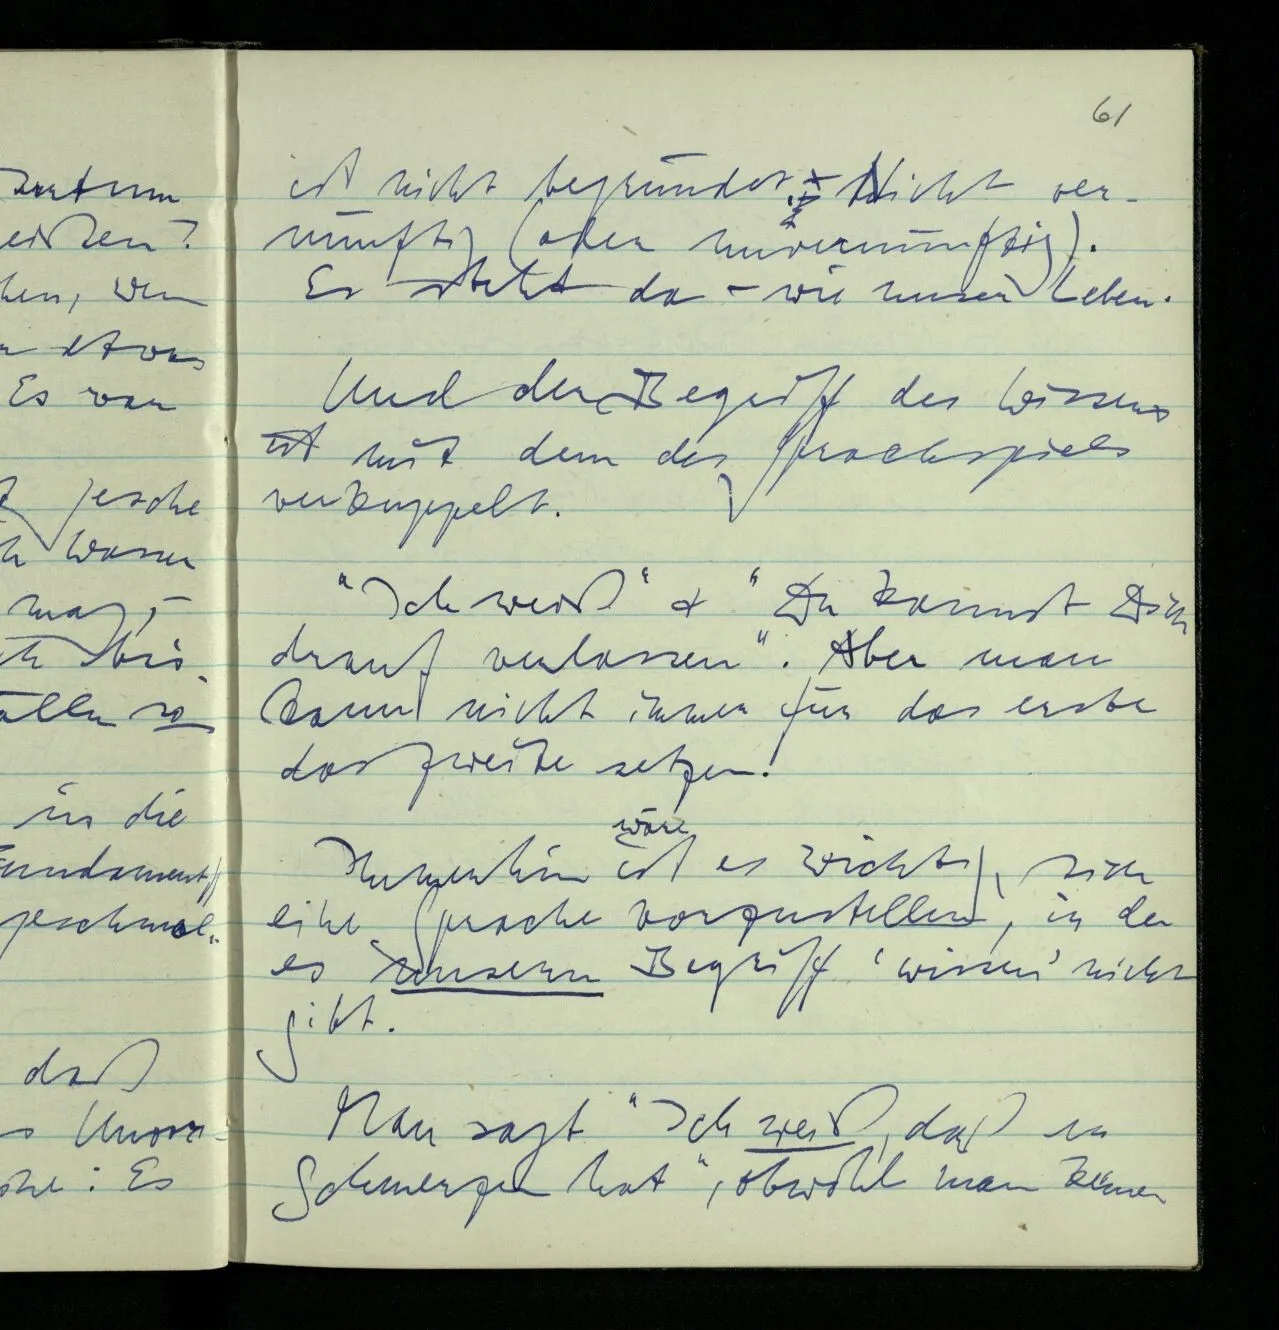 61
zentrum
eisten?
hen, wen
n etwas
Es war
t jesche
h wasser
mag, –
ch bis
ällen so
in die
Fundament
geschmol-
daß
s Unvor-
ohe: Es
ist nicht begründet. Nicht ver-
nünftig (oder unvernünftig).
Es steht da – wie unser Leben.
Und der Begriff des Wissens
ist mit dem des Sprachspiels
verkuppelt.
"Ich weiß" & "Du kannst Dich
drauf verlassen". Aber man
kann nicht immer für das erste
das zweite setzen.
wäre
Immerhin ist es wichtig, sich
eine Sprache vorzustellen, in der
es unsern Begriff 'wissen' nicht
gibt.
Man sagt "Ich weiß, daß er
Schmerzen hat", obwohl man keinen